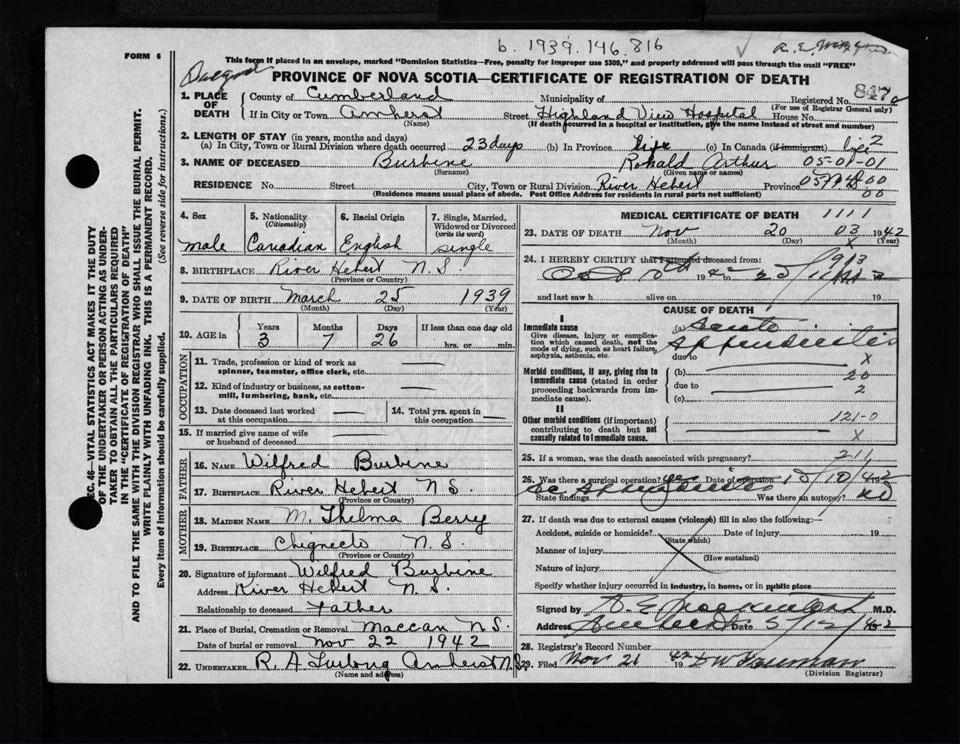 b. 1939. 146. 816
FORM 6
This form if placed in an envelope, marked "Dominion Statistics—Free, penalty for improper use $300," and properly addressed will pass through the mail "FREE"
PROVINCE OF NOVA SCOTIA—CERTIFICATE OF REGISTRATION OF DEATH
1. PLACE OF DEATH
County of Cumberland Municipality of Registered No.
(For use of Registrar General only)
If in City or Town Amherst Street Highland View Hospital House No.
(Name) (If death occurred in a hospital or institution, give the name instead of street and number)
2. LENGTH OF STAY (in years, months and days)
(a) In City, Town or Rural Division where death occurred 23 days (b) In Province life (c) In Canada (if immigrant) life 2
3. NAME OF DECEASED Burbine Ronald Arthur 05-01-01
(Surname) (Given name or names)
RESIDENCE No. Street City, Town or Rural Division River Hebert Province
(Residence means usual place of abode. Post Office Address for residents in rural parts not sufficient) 00
SEC. 46—VITAL STATISTICS ACT MAKES IT THE DUTY
OF THE UNDERTAKER OR PERSON ACTING AS UNDER-
TAKER TO OBTAIN ALL THE PARTICULARS REQUIRED
IN THE "CERTIFICATE OF REGISTRATION OF DEATH"
AND TO FILE THE SAME WITH THE DIVISION REGISTRAR WHO SHALL ISSUE THE BURIAL PERMIT.
WRITE PLAINLY WITH UNFADING INK. THIS IS A PERMANENT RECORD.
Every item of information should be carefully supplied. (See reverse side for instructions.)
4. Sex
male
5. Nationality
(Citizenship)
Canadian
6. Racial Origin
English
7. Single, Married,
Widowed or Divorced
(write the word)
single
8. BIRTHPLACE River Hebert N.S.
(Province or Country)
9. DATE OF BIRTH March 25 1939
(Month) (Day) (Year)
10. AGE in Years Months Days If less than one day old
3 7 26 hrs. or min.
OCCUPATION
11. Trade, profession or kind of work as
spinner, teamster, office clerk, etc.
12. Kind of industry or business, as cotton-
mill, lumbering, bank, etc.
13. Date deceased last worked
at this occupation
14. Total yrs. spent in
this occupation
15. If married give name of wife
or husband of deceased
FATHER
16. NAME Wilfred Burbine
17. BIRTHPLACE River Hebert N S
(Province or Country)
MOTHER
18. MAIDEN NAME M. Thelma Berry
19. BIRTHPLACE Chignecto N. S.
(Province or Country)
20. Signature of informant Wilfred Burbine
Address River Hebert N. S.
Relationship to deceased Father
21. Place of Burial, Cremation or Removal Maccan N.S.
Date of burial or removal Nov 22 1942
22. UNDERTAKER R. A Furlong Amherst N.S.
(Name and address)
MEDICAL CERTIFICATE OF DEATH 1111
23. DATE OF DEATH Nov 20 03 1942
(Month) (Day) x (Year)
24. I HEREBY CERTIFY that I attended deceased from:
and last saw h alive on 19
CAUSE OF DEATH
I
Immediate cause
Give disease, injury or complication which caused death, not the mode of dying, such as heart failure, asphyxia, asthenia, etc.
(a) Acute
Appendicitis
due to x
Morbid conditions, if any, giving rise to immediate cause (stated in order proceeding backwards from immediate cause).
(b) 20
due to 2
(c)
II
Other morbid conditions (if important) contributing to death but not causally related to immediate cause.
121-0
x
25. If a woman, was the death associated with pregnancy? 211
26. Was there a surgical operation? Date of operation 15/10/42
State findings Appendicitis Was there an autopsy? no
27. If death was due to external causes (violence) fill in also the following:—
Accident, suicide or homicide? Date of injury 19
(State which)
Manner of injury
(How sustained)
Nature of injury
Specify whether injury occurred in industry, in home, or in public place
Signed by M.D.
Address Date 5/12/42
28. Registrar's Record Number
29. Filed Nov 21 1942
(Division Registrar)